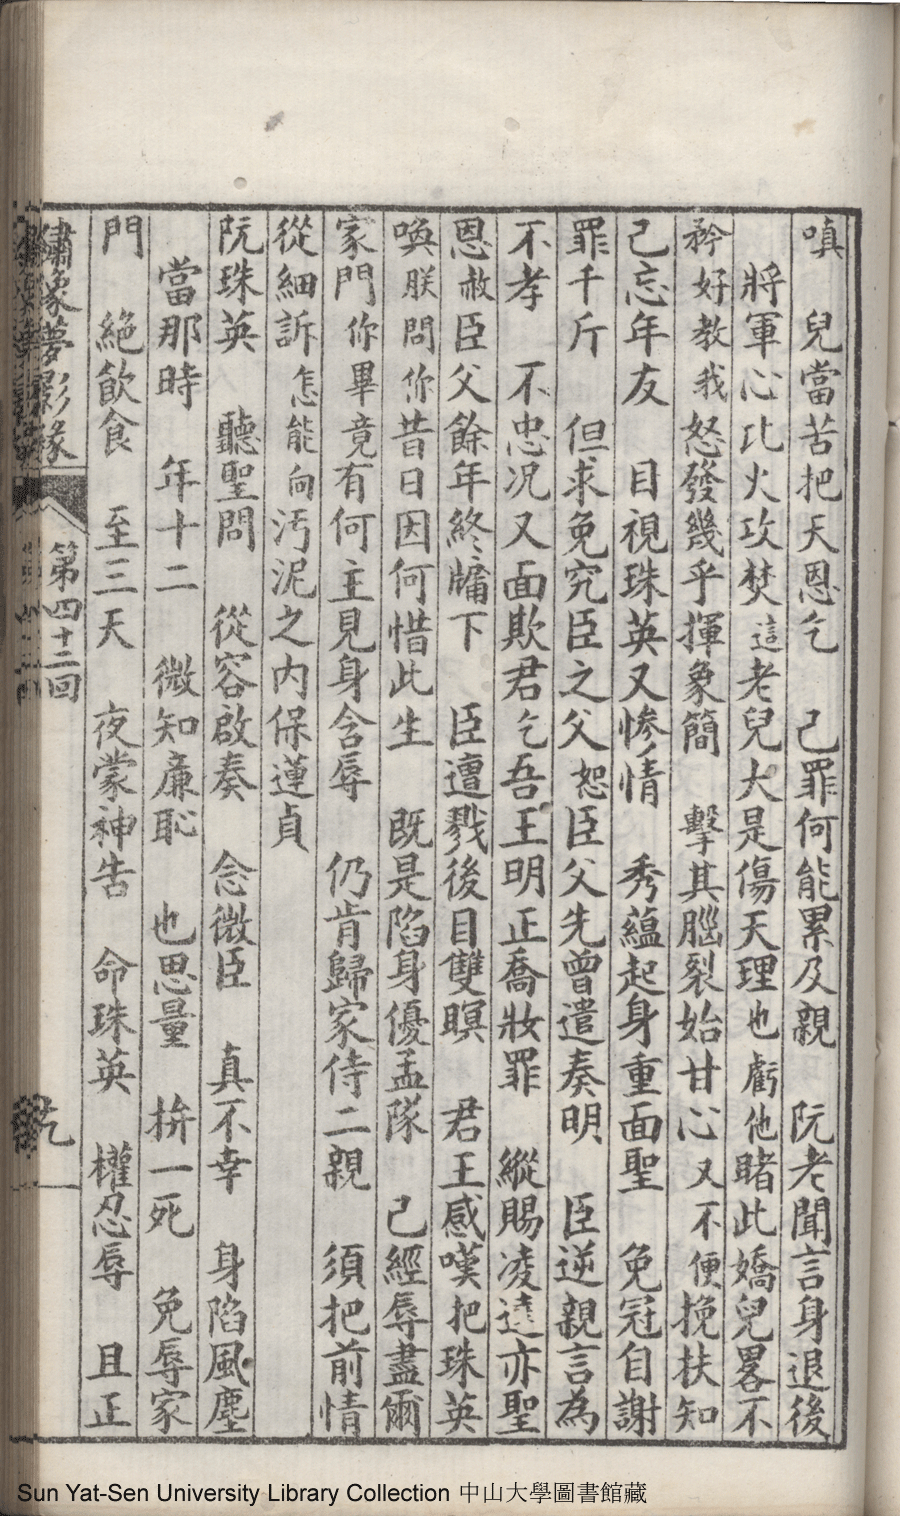 嗔　兒當苦把天恩乞　己罪何能累及親　阮老聞言身退後
將軍心比火攻焚這老兒大是傷天理也虧他賭此嬌兒畧不
矜好教我怒發幾乎揮象簡　擊其腦裂始甘心又不便挽扶知
己忘年友　目視珠英又慘情　秀蘊起身重面聖　免冠自謝
罪千斤　但求免究臣之父恕臣父先曾遣奏明　臣逆親言為
不孝　不忠况又面欺君乞吾王明正喬妝罪　縱賜凌遲亦聖
恩赦臣父餘年終牖下　臣遭戮後目雙瞑　君王感嘆把珠英
喚朕問你昔日因何惜此生　既是陷身優孟隊　己經辱盡爾
家門你畢竟有何主見身含辱　仍肯歸家侍二親　須把前情
從細訴怎能向汚泥之内保蓮貞
阮珠英　聽聖問　從容啟奏　念微臣　真不幸　身陷風塵
當那時　年十二　微知亷恥　也思量　拚一死　免辱家
門　絶飲食　至三天　夜蒙神告　命珠英　權忍辱　且正
繡像夢影緣
第四十二回